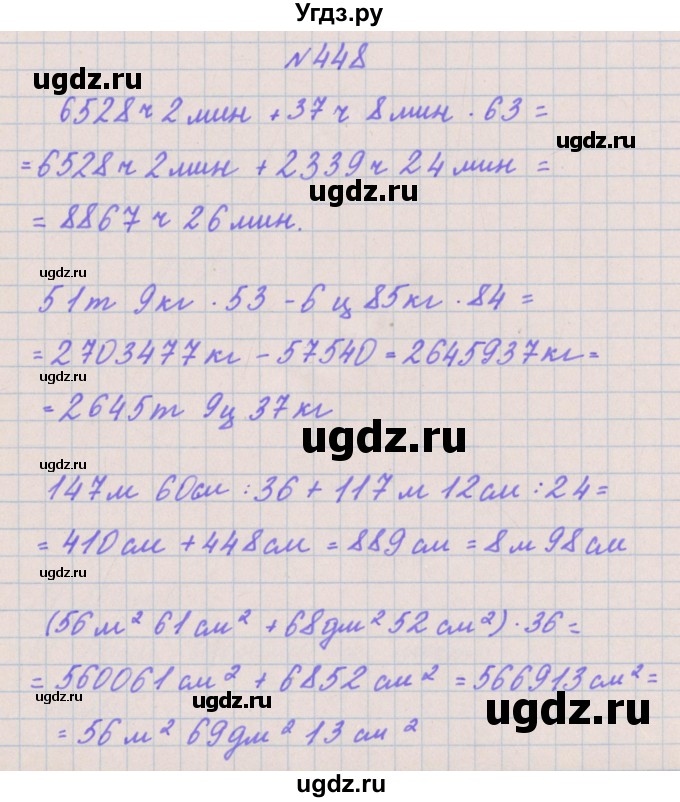 Угдз.ру
N 448
ugdz.ru
6528 ч 2 мин + 37 ч 8 мин · 63 =
ugdz.ru
= 6528 ч 2 мин + 2339 ч 24 мин =
ugdz.ru
= 8867 ч 26 мин.
ugdz.ru
51 т 9 кг · 53 - 6 ц 85 кг · 84 =
ugdz.ru
= 2703477 кг - 57540 = 2645937 кг =
ugdz.ru
= 2645 т 9 ц 37 кг
ugdz.ru
ugdz.ru
147 м 60 см : 36 + 117 м 12 см : 24 =
= 410 см + 448 см = 889 см = 8 м 98 см
ugdz.ru
(56 м² 61 см² + 68 дм² 52 см²) · 36 =
ugdz.ru
= 560061 см² + 6852 см² = 566913 см² =
ugdz.ru
ugdz.ru
ugdz.ru
= 56 м² 69 дм² 13 см²
ugdz.ru